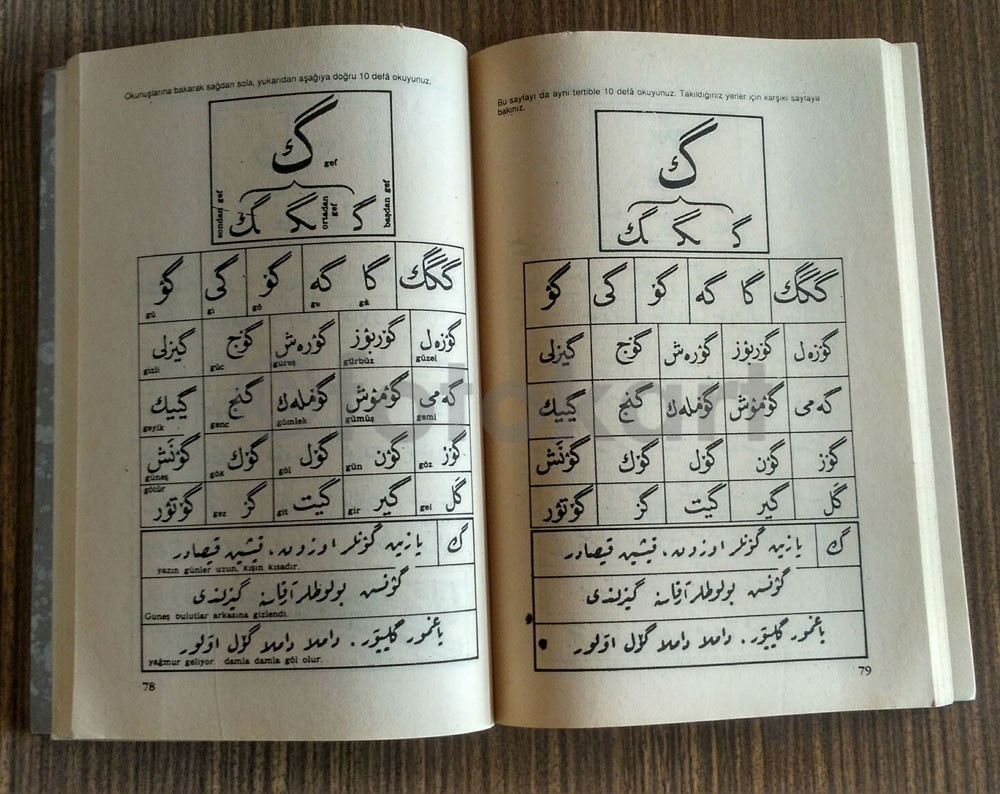 Okunuşlarına bakarak sağdan sola, yukarıdan aşağıya doğru 10 defâ okuyunuz.
گ
gef
sondan gef ortadan gef başdan gef
ـگ ـگـ گـ
گگگ گا گه گو گی گؤ
gâ ge gö gi gü
گوزەل گوربوز گورەش گوج گیزلی
güzel gürbüz güreş güç gizli
گەمی گوموش گوملەك گنج گییك
gemi gümüş gömlek genc geyik
گوز گون گول گوك گونش
göz gün göl gök güneş
گل گیر گیت گز گوتور
gel gir git gez götür
گ یازین گونلر اوزون، قیشین قیصادر
yazın günler uzun, kışın kısadır.
گونش بولوطلر آرقاسنه گیزلندی
Güneş bulutlar arkasına gizlendi.
یاغمور گلییور. داملا داملا گول اولور
yağmur geliyor. damla damla göl olur.
78
Bu sayfayı da ayni tertible 10 defâ okuyunuz. Takıldığınız yerler için karşıki sayfaya
bakınız.
گ
ـگ ـگـ گـ
گگگ گا گه گو گی گؤ
گوزەل گوربوز گورەش گوج گیزلی
گەمی گوموش گوملەك گنج گییك
گوز گون گول گوك گونش
گل گیر گیت گز گوتور
گ یازین گونلر اوزون، قیشین قیصادر
گونش بولوطلر آرقاسنه گیزلندی
یاغمور گلییور. داملا داملا گول اولور
79